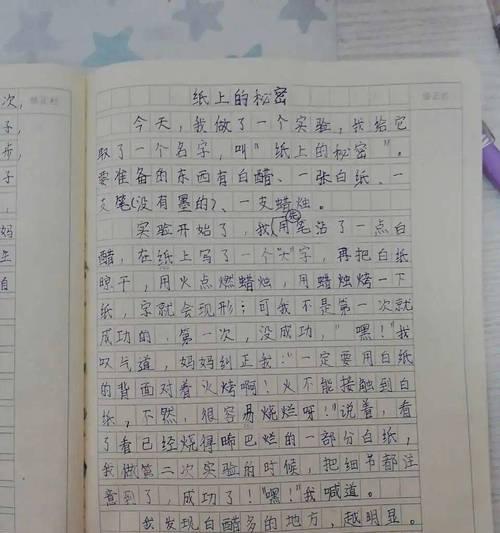 次，
子，
步，
子
妈
生
自
修正栏
修正栏
纸上的秘密
今天，我做了一个实验，我给它
取了一个名字，叫“纸上的秘密”。
要准备的东西有白醋、一张白纸、一
支笔(没有墨的)、一支蜡烛。
实验开始了，我先用笔沾了一点白
醋，在纸上写了一个“大”字，再把白纸
晾干，用火点燃蜡烛，用蜡烛烤一下
纸，字就会现形；可我不是第一次就
成功的，第一次，没成功，“嘿！”我
叹气道，妈妈纠正我：“一定要用白纸
的背面对着火烤啊！火不能接触到白
纸，不然，很容易烧烂呀！”说着，看
了看已经烧得稀巴烂的一部分白纸，
我做第二次实验的时候，把细节都注
意到了，成功了！“嘿！”我喊道。
我发现白醋多的地方，越明显。